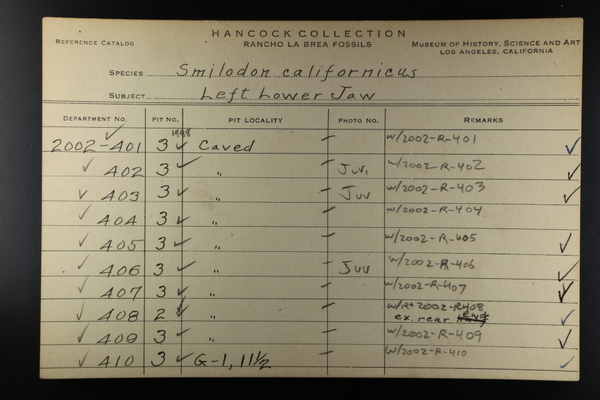 HANCOCK COLLECTION
REFERENCE CATALOG RANCHO LA BREA FOSSILS MUSEUM OF HISTORY, SCIENCE AND ART
LOS ANGELES, CALIFORNIA
SPECIES Smilodon californicus
SUBJECT Left Lower Jaw
DEPARTMENT NO. PIT NO. PIT LOCALITY PHOTO NO. REMARKS
2002-401 3 Caved w/2002-R-401
402 3 " Juv. w/2002-R-402
403 3 " Juv w/2002-R-403
404 3 " w/2002-R-404
405 3 " w/2002-R-405
406 3 " Juv w/2002-R-406
407 3 " w/2002-R-407
408 2 " w/R+2002-R408
ex. rear end
409 3 " w/2002-R-409
410 3 G-1, 11½ w/2002-R-410